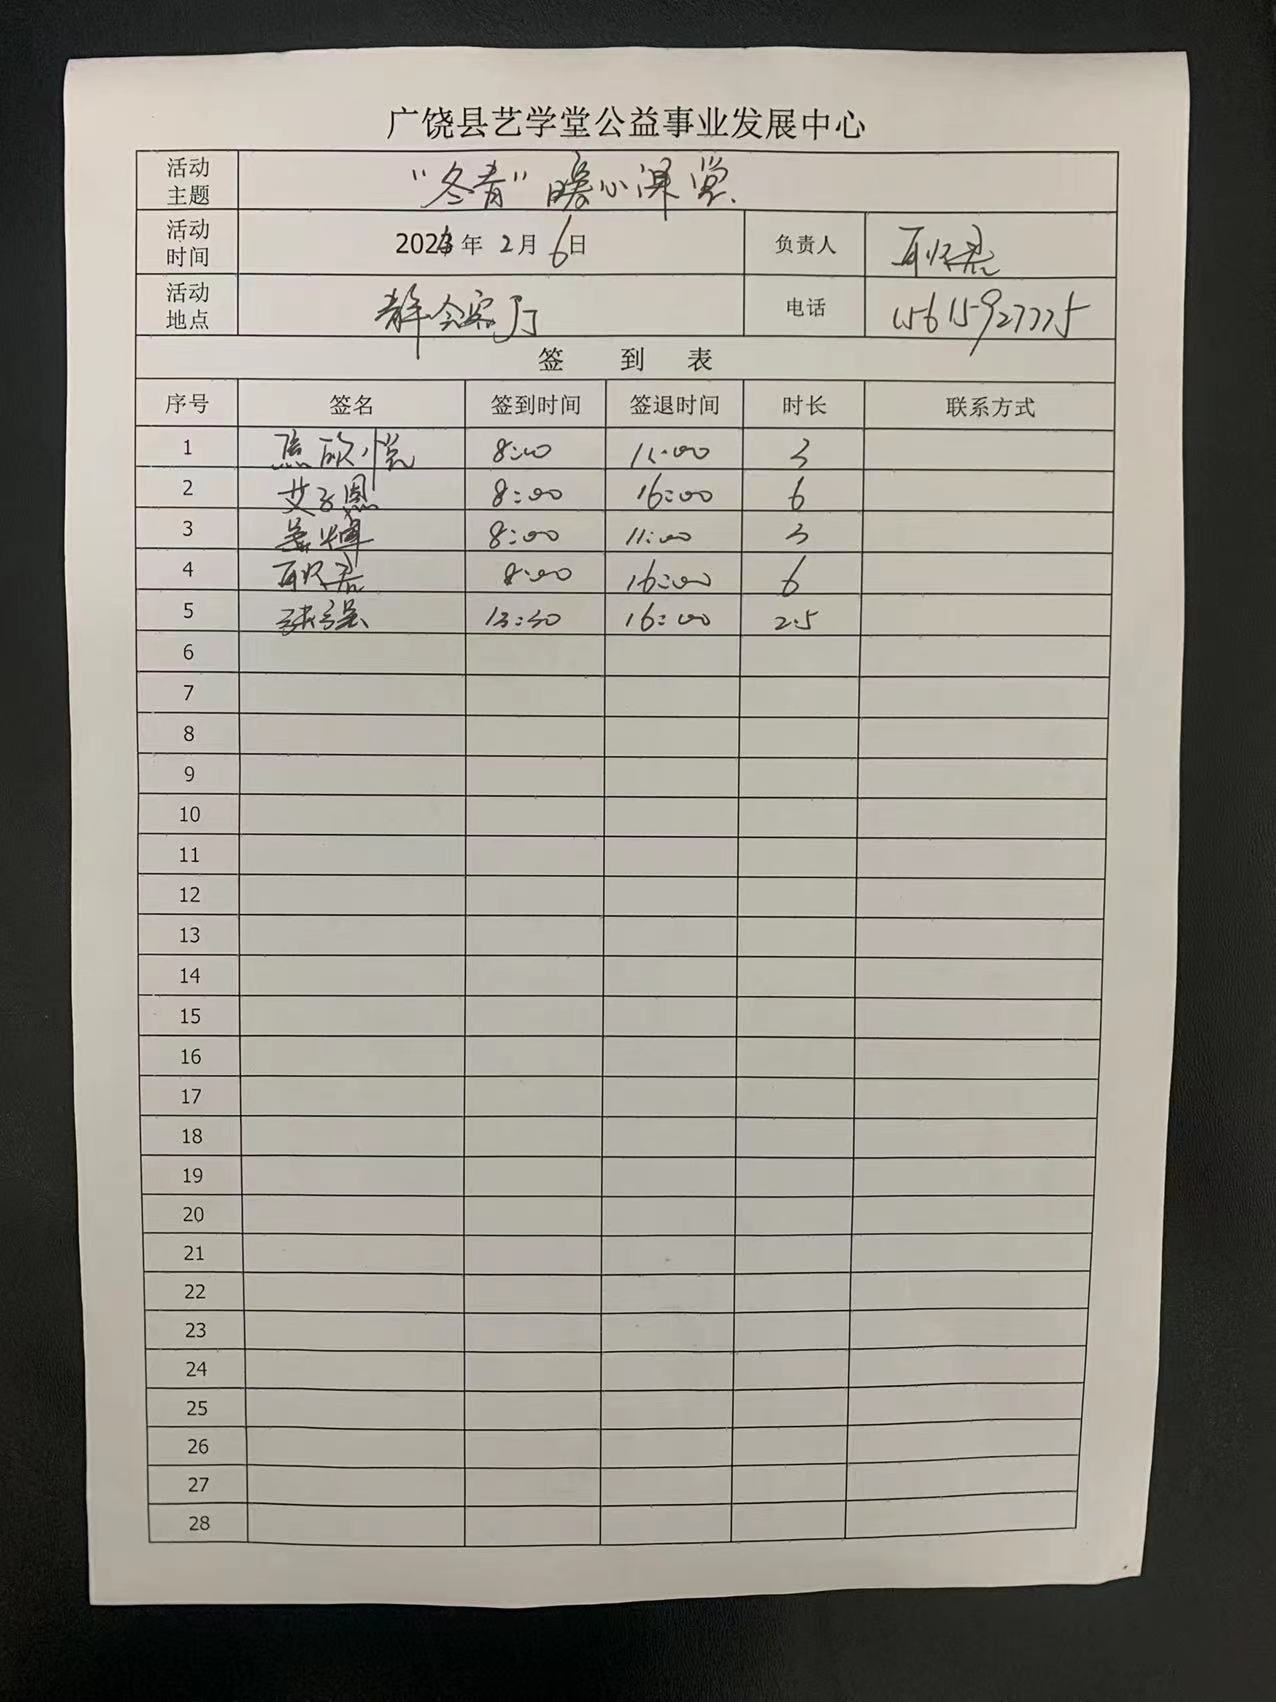 广饶县艺学堂公益事业发展中心
活动主题 "冬青"暖心课堂
活动时间 2023年2月6日 负责人
活动地点 会客厅 电话 15615927775
签 到 表
序号 签名 签到时间 签退时间 时长 联系方式
1 焦欣悦 8:00 11:00 3
2 艾子恩 8:00 16:00 6
3 8:00 11:00 3
4 8:00 16:00 6
5 13:30 16:00 2.5
6
7
8
9
10
11
12
13
14
15
16
17
18
19
20
21
22
23
24
25
26
27
28